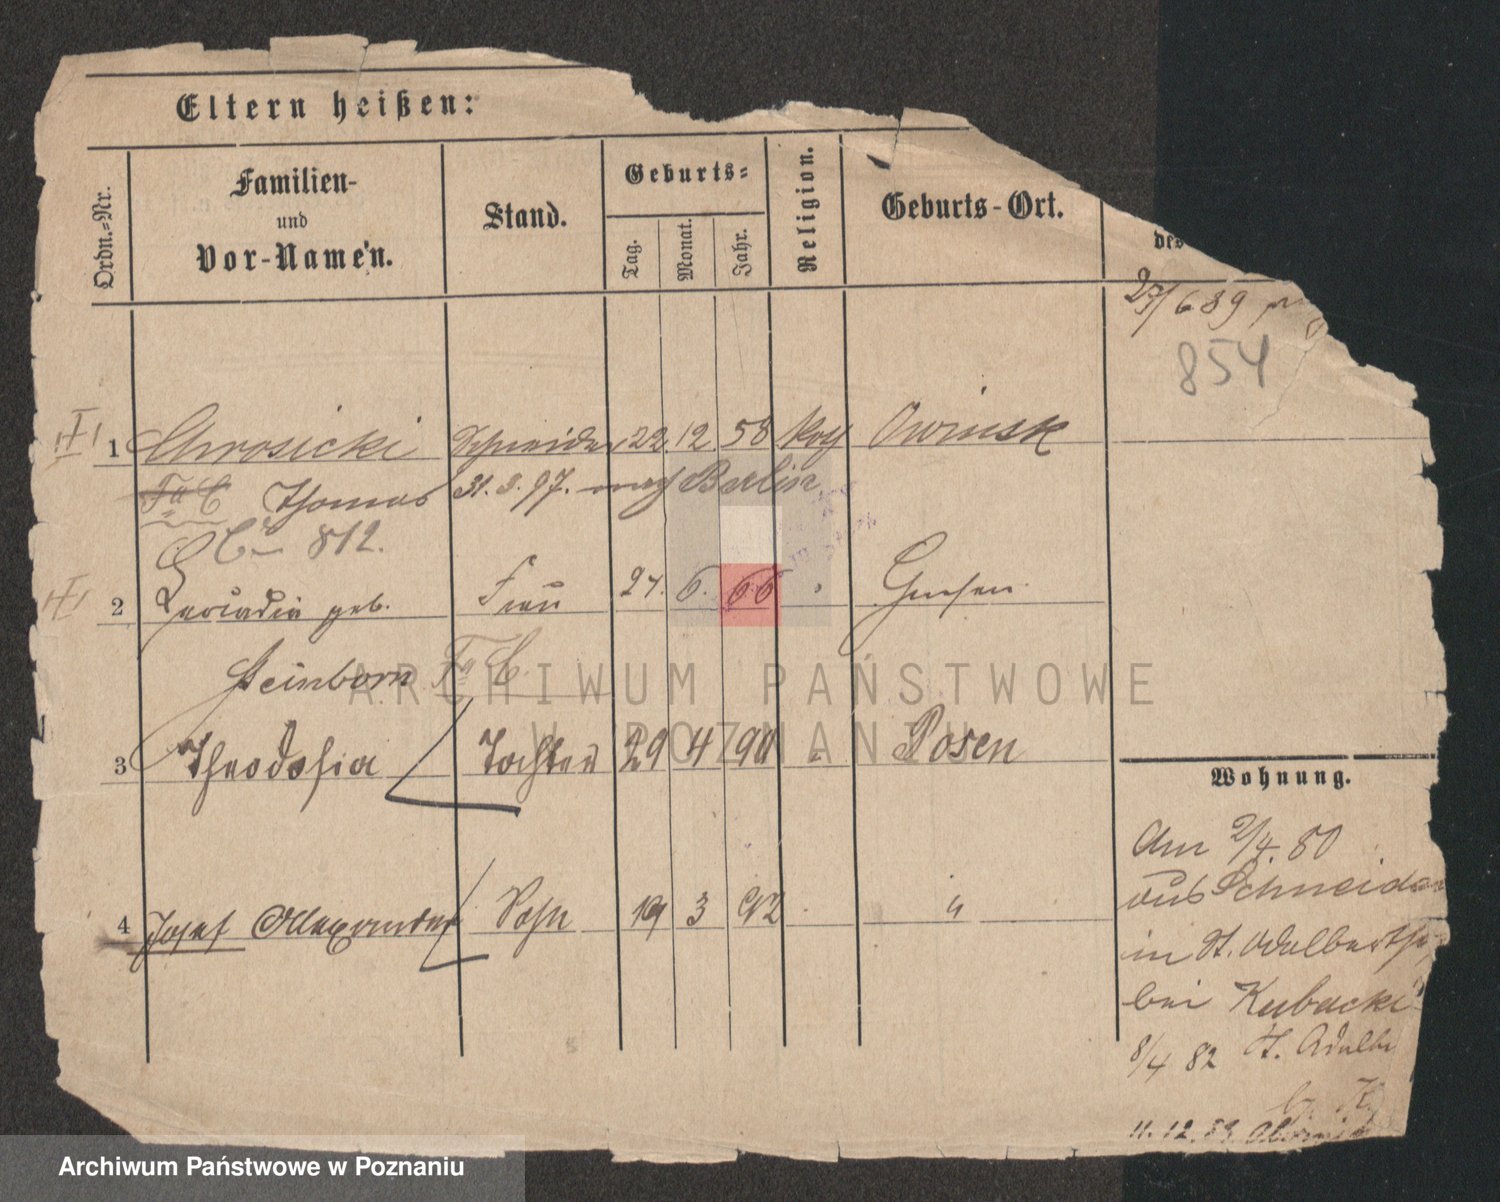 Eltern heißen:
Ordn.-Nr.
Familien-
und
Vor-Namen.
Stand.
Geburts-
Tag.
Monat.
Jahr.
Religion.
Geburts-Ort.
des
27/6 89
854
1 Chrosicki Schneider 22. 12. 58 Kath Owinsk
Thomas 31. 3. 97. nach Berlin
C 812.
2 Leocadia geb. Frau 27. 6. 66 Gnesen
Steinborn
3 Theodosia Tochter 29 4 90 " Posen
4 Josef Allexander Sohn 19 3 92 "
Wohnung.
Am 2/4. 80
aus Schneide
in St. Adalberts
bei Kubacki
8/4 82 St. Adalb
11. 12. 83
ARCHIWUM PAŃSTWOWE
W POZNANIU
Archiwum Państwowe w Poznaniu